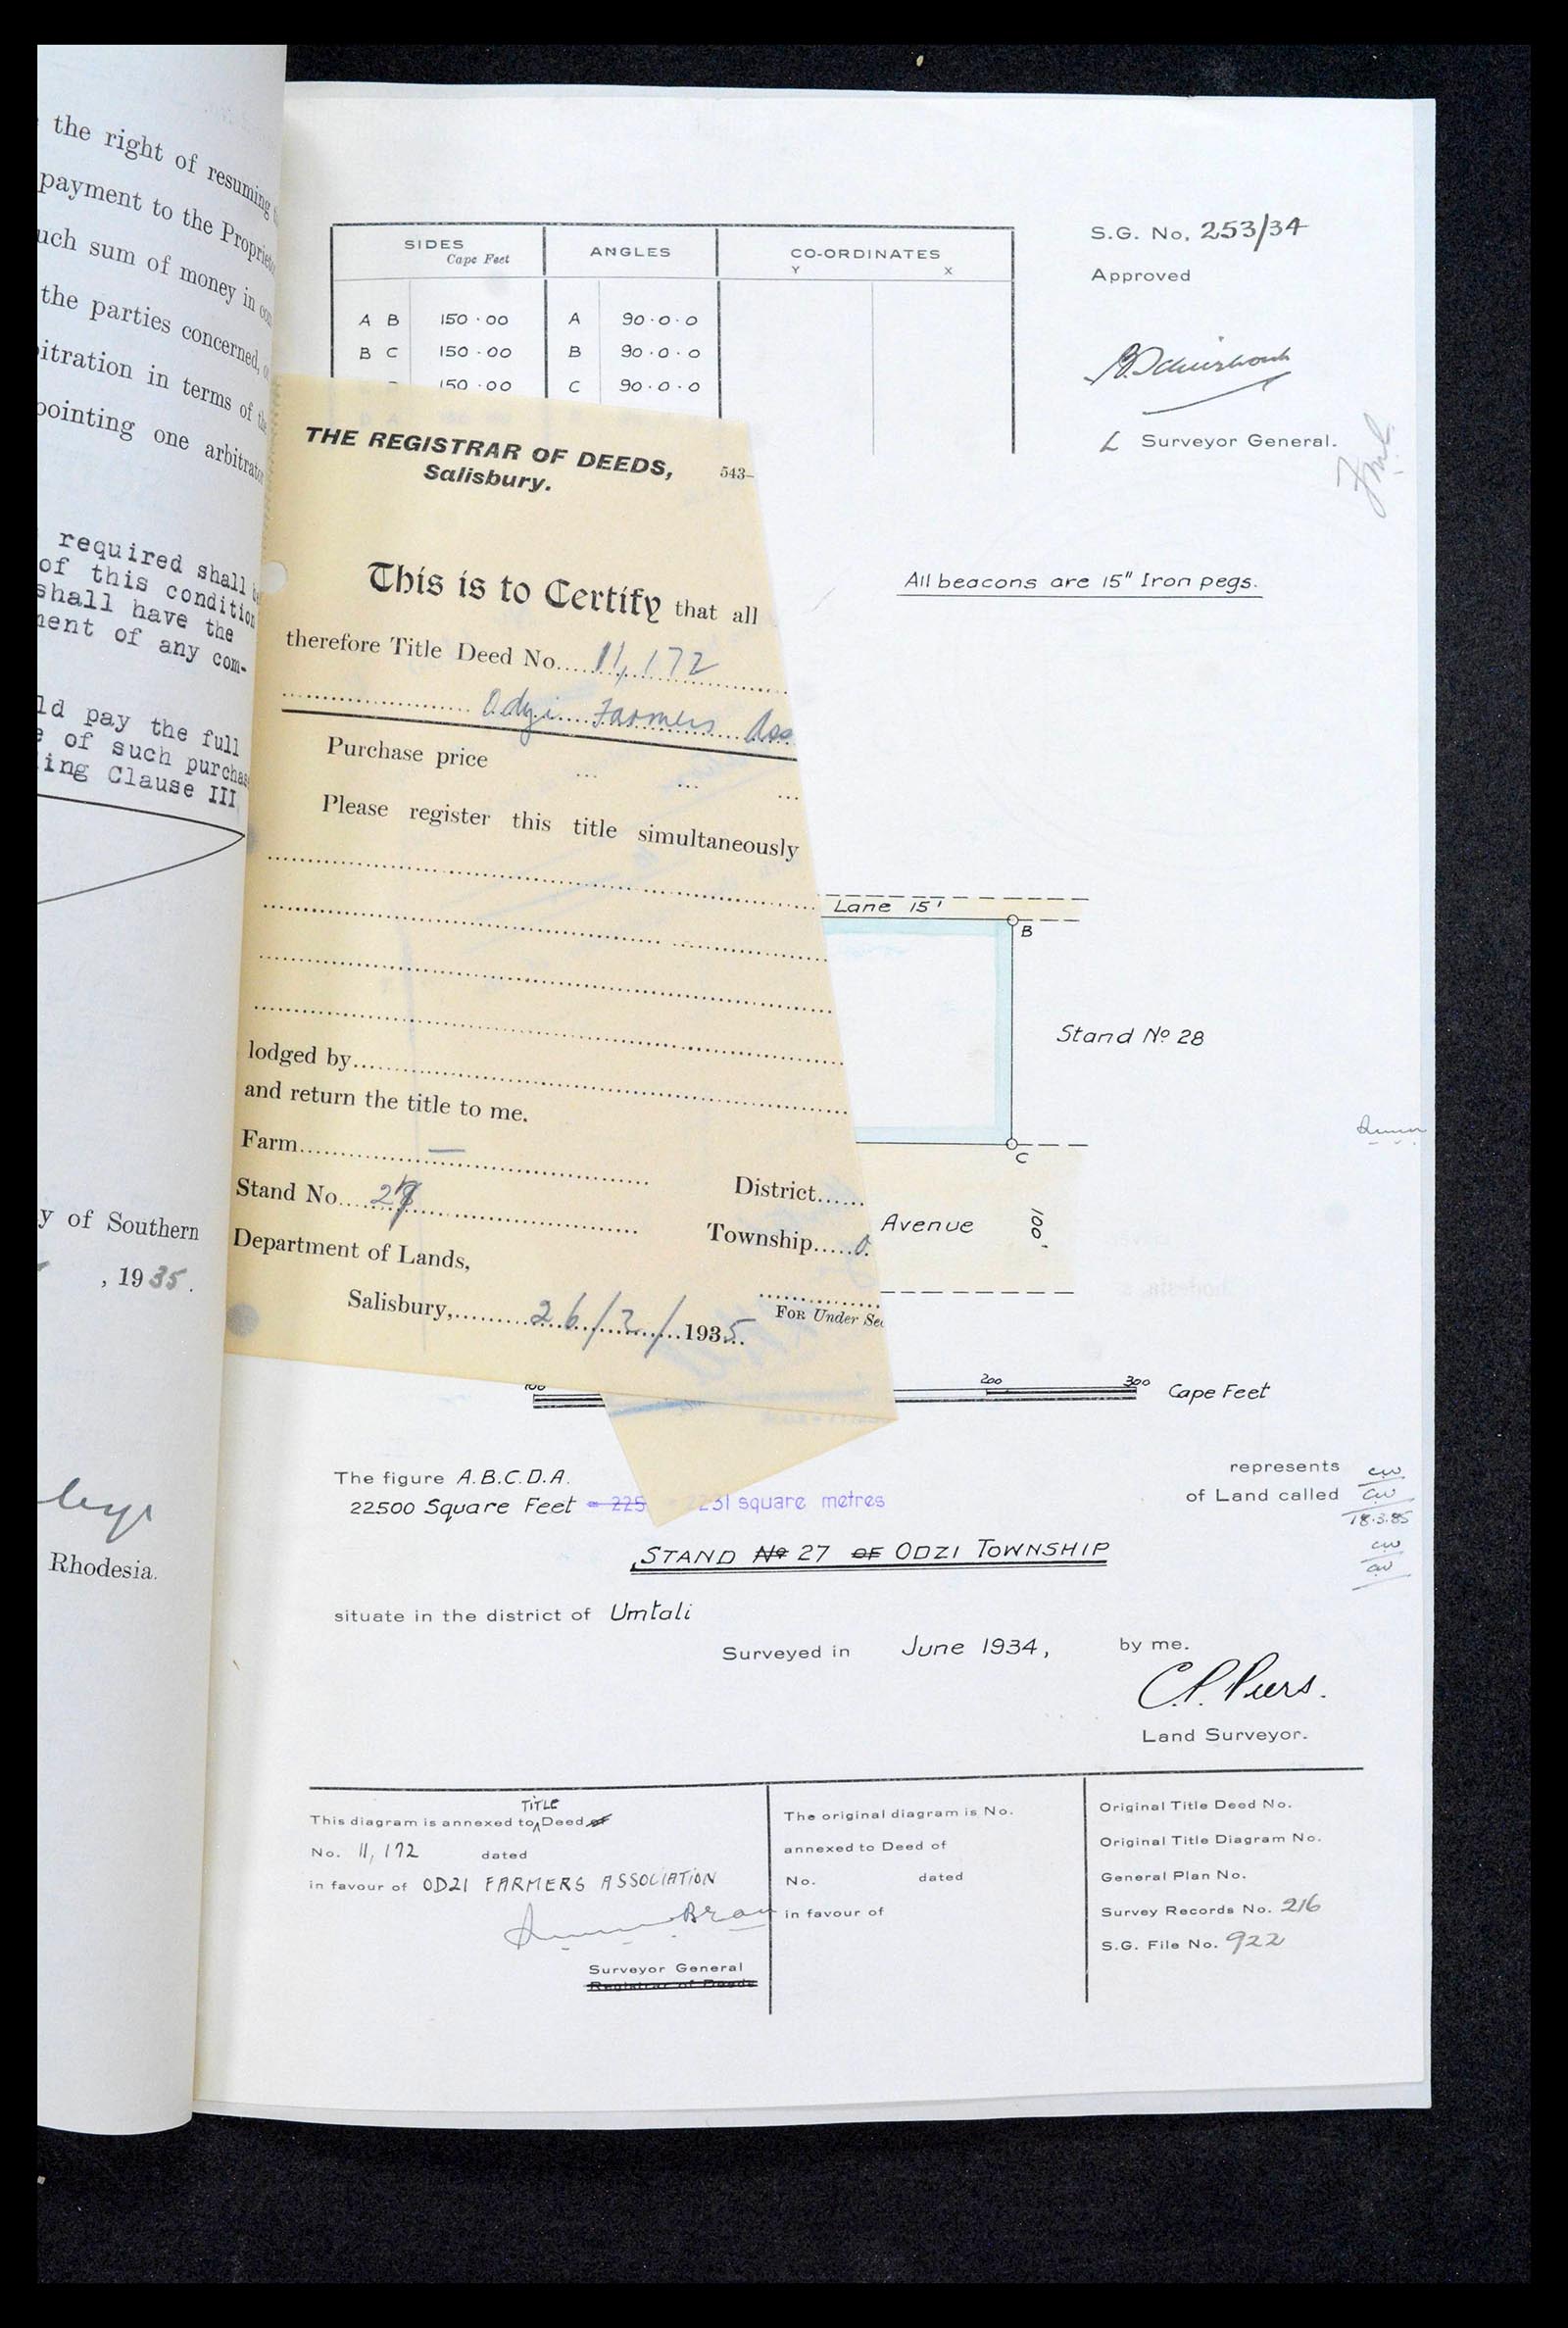 the right of resuming
payment to the Proprieto
uch sum of money in con
the parties concerned, o
itration in terms of the
pointing one arbitrator
required shall b
of this condition
shall have the
ment of any com-
ld pay the full
e of such purchas
ing Clause III
y of Southern
, 1935.
Rhodesia.
SIDES
Cape Feet
ANGLES
CO-ORDINATES
Y X
A B 150·00 A 90·0·0
B C 150·00 B 90·0·0
150·00 C 90·0·0
S.G. No. 253/34
Approved
Surveyor General.
All beacons are 15" Iron pegs.
THE REGISTRAR OF DEEDS,
Salisbury.
543-
This is to Certify that all
therefore Title Deed No....11,172
Odzi Farmers Ass
Purchase price ... ... ...
Please register this title simultaneously
lodged by
and return the title to me.
Farm —
District
Stand No. 27
Township O
Department of Lands,
Salisbury, 26/2/1935
For Under Sec
Lane 15'
B
Stand No 28
C
Avenue 100'
100 200 300 Cape Feet
The figure A.B.C.D.A. represents
22500 Square Feet = 225 2231 square metres of Land called
cw
cw
18.3.85
cw
cw
STAND No 27 OF ODZI TOWNSHIP
situate in the district of Umtali
Surveyed in June 1934, by me.
C.P. Piers.
Land Surveyor.
TITLE
This diagram is annexed to Deed of
No. 11,172 dated
in favour of ODZI FARMERS ASSOCIATION
Surveyor General
Registrar of Deeds
The original diagram is No.
annexed to Deed of
No. dated
in favour of
Original Title Deed No.
Original Title Diagram No.
General Plan No.
Survey Records No. 216
S.G. File No. 922